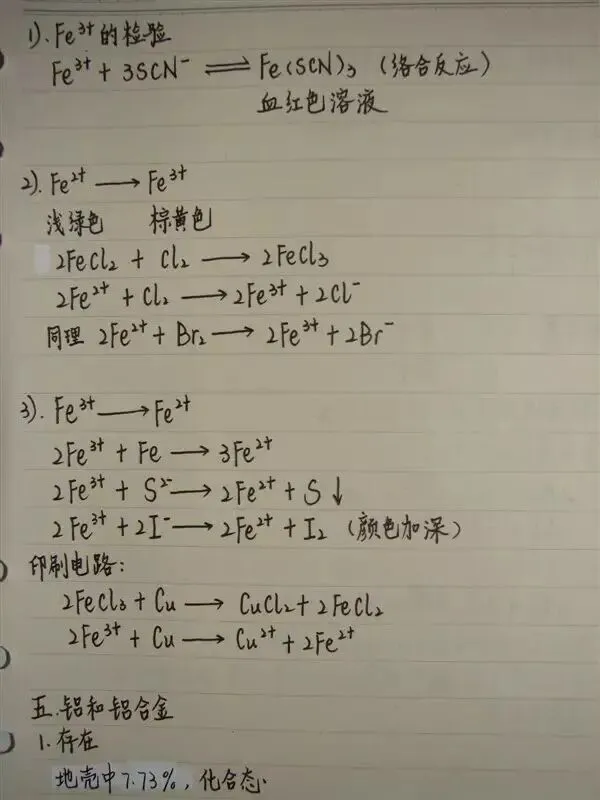 1). Fe³⁺的检验
Fe³⁺ + 3SCN⁻ ⇌ Fe(SCN)₃ (络合反应)
血红色溶液
2). Fe²⁺ ⟶ Fe³⁺
浅绿色 棕黄色
2FeCl₂ + Cl₂ ⟶ 2FeCl₃
2Fe²⁺ + Cl₂ ⟶ 2Fe³⁺ + 2Cl⁻
同理 2Fe²⁺ + Br₂ ⟶ 2Fe³⁺ + 2Br⁻
3). Fe³⁺ ⟶ Fe²⁺
2Fe³⁺ + Fe ⟶ 3Fe²⁺
2Fe³⁺ + S²⁻ ⟶ 2Fe²⁺ + S↓
2Fe³⁺ + 2I⁻ ⟶ 2Fe²⁺ + I₂ (颜色加深)
印刷电路:
2FeCl₃ + Cu ⟶ CuCl₂ + 2FeCl₂
2Fe³⁺ + Cu ⟶ Cu²⁺ + 2Fe²⁺
五.铝和铝合金
1.存在
地壳中7.73%, 化合态.